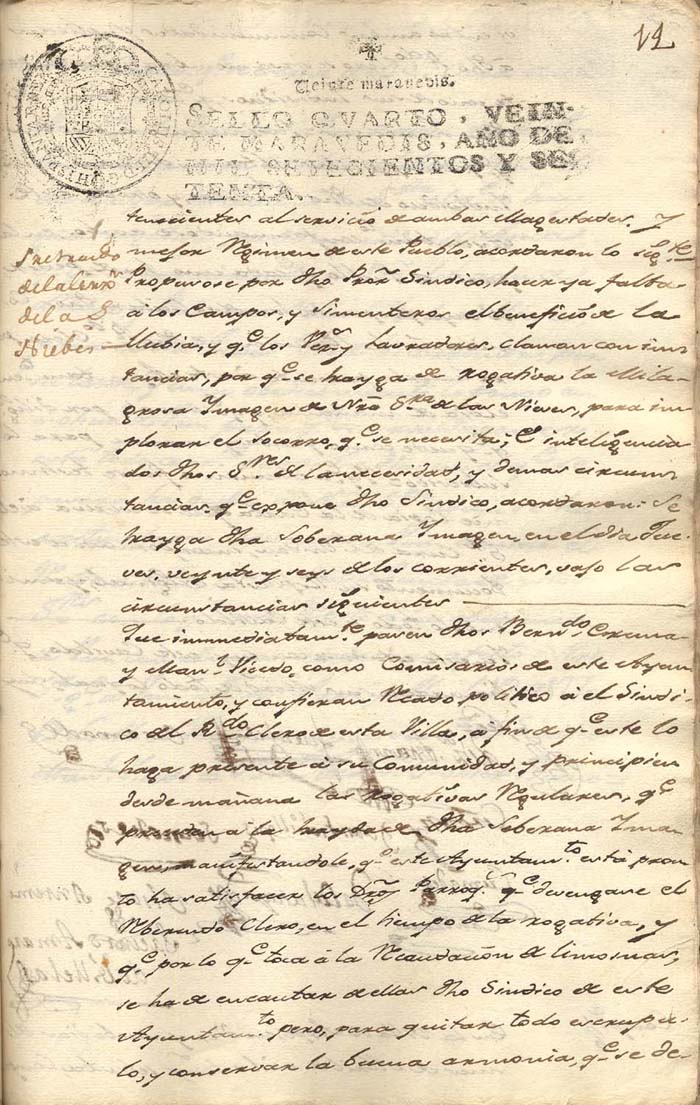 12
Veinte maravedis.
SELLO QVARTO, VEIN-
TE MARAVEDIS, AÑO DE
MIL SETECIENTOS Y SE-
TENTA.
tenecientes al servicio de ambas Magestades. Y
mejor Regimen de este Pueblo, acordaron lo sigte
Propusose por dho Pror Sindico, hacer ya falta
à los Campos, y simenteros el beneficio de la
llubia, y qe los Vezos y Lavradores, claman con ins
tancias, por qe se trayga de rogativa la Mila
grosa Ymagen de Nra Sra de las Nieves, para im
plorar el socorro, qe se necesita; è inteligencia
dos dhos Sres de la necesidad, y demas circuns
tancias qe expone dho Sindico, acordaron: Se
trayga dha Soberana Ymagen, en el dia Jue
ves, veynte y seys de los corrientes, vajo las
circunstancias siguientes
Que immediatamte pasen dhos Berndo
y Manl Vicedo, como Comisarios de este Ayun
tamiento, y confieran Recado politico à el Sindi
co del Rdo Clero de esta Villa, a fin de qe este lo
haga presente à su Comunidad, y principien
desde mañana las rogativas Regulares, qe
precedan à la trayda de dha Soberana Yma
gen, manifestandole, qe este Ayuntamto está pron
to ha satisfacer los Dros Parroqs qe devengare el
Reberendo Clero, en el tiempo de la rogativa, y
qe por lo qe toca à la Recaudacion de limosnas,
se ha de encautar de ellas dho Sindico de este
Ayuntamto pero, para quitar todo escrupu-
lo, y conservar la buena armonia, qe se de-
de la
de la S
Niebes